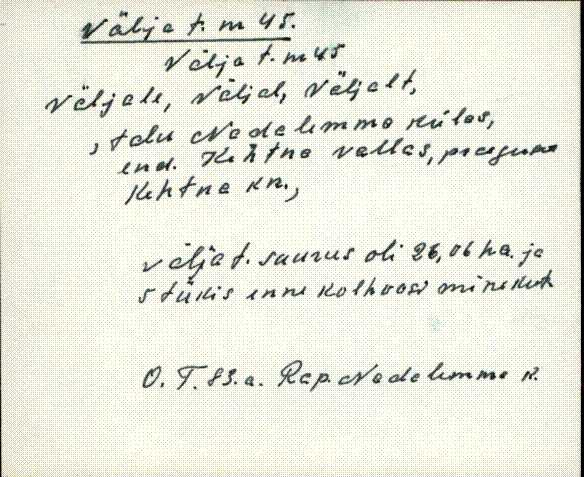 Välja t. m 45.
Välja t. m 45
Väljale, Väljal, Väljalt,
, talu Nadalemma külas,
end. Kehtna vallas, praeguse
Kehtna kn.,
Välja t. suurus oli 26,06 ha. ja
5 tükis enne kolhoosi minekut
O. T. 83. a. Rap. Nadalemma k.